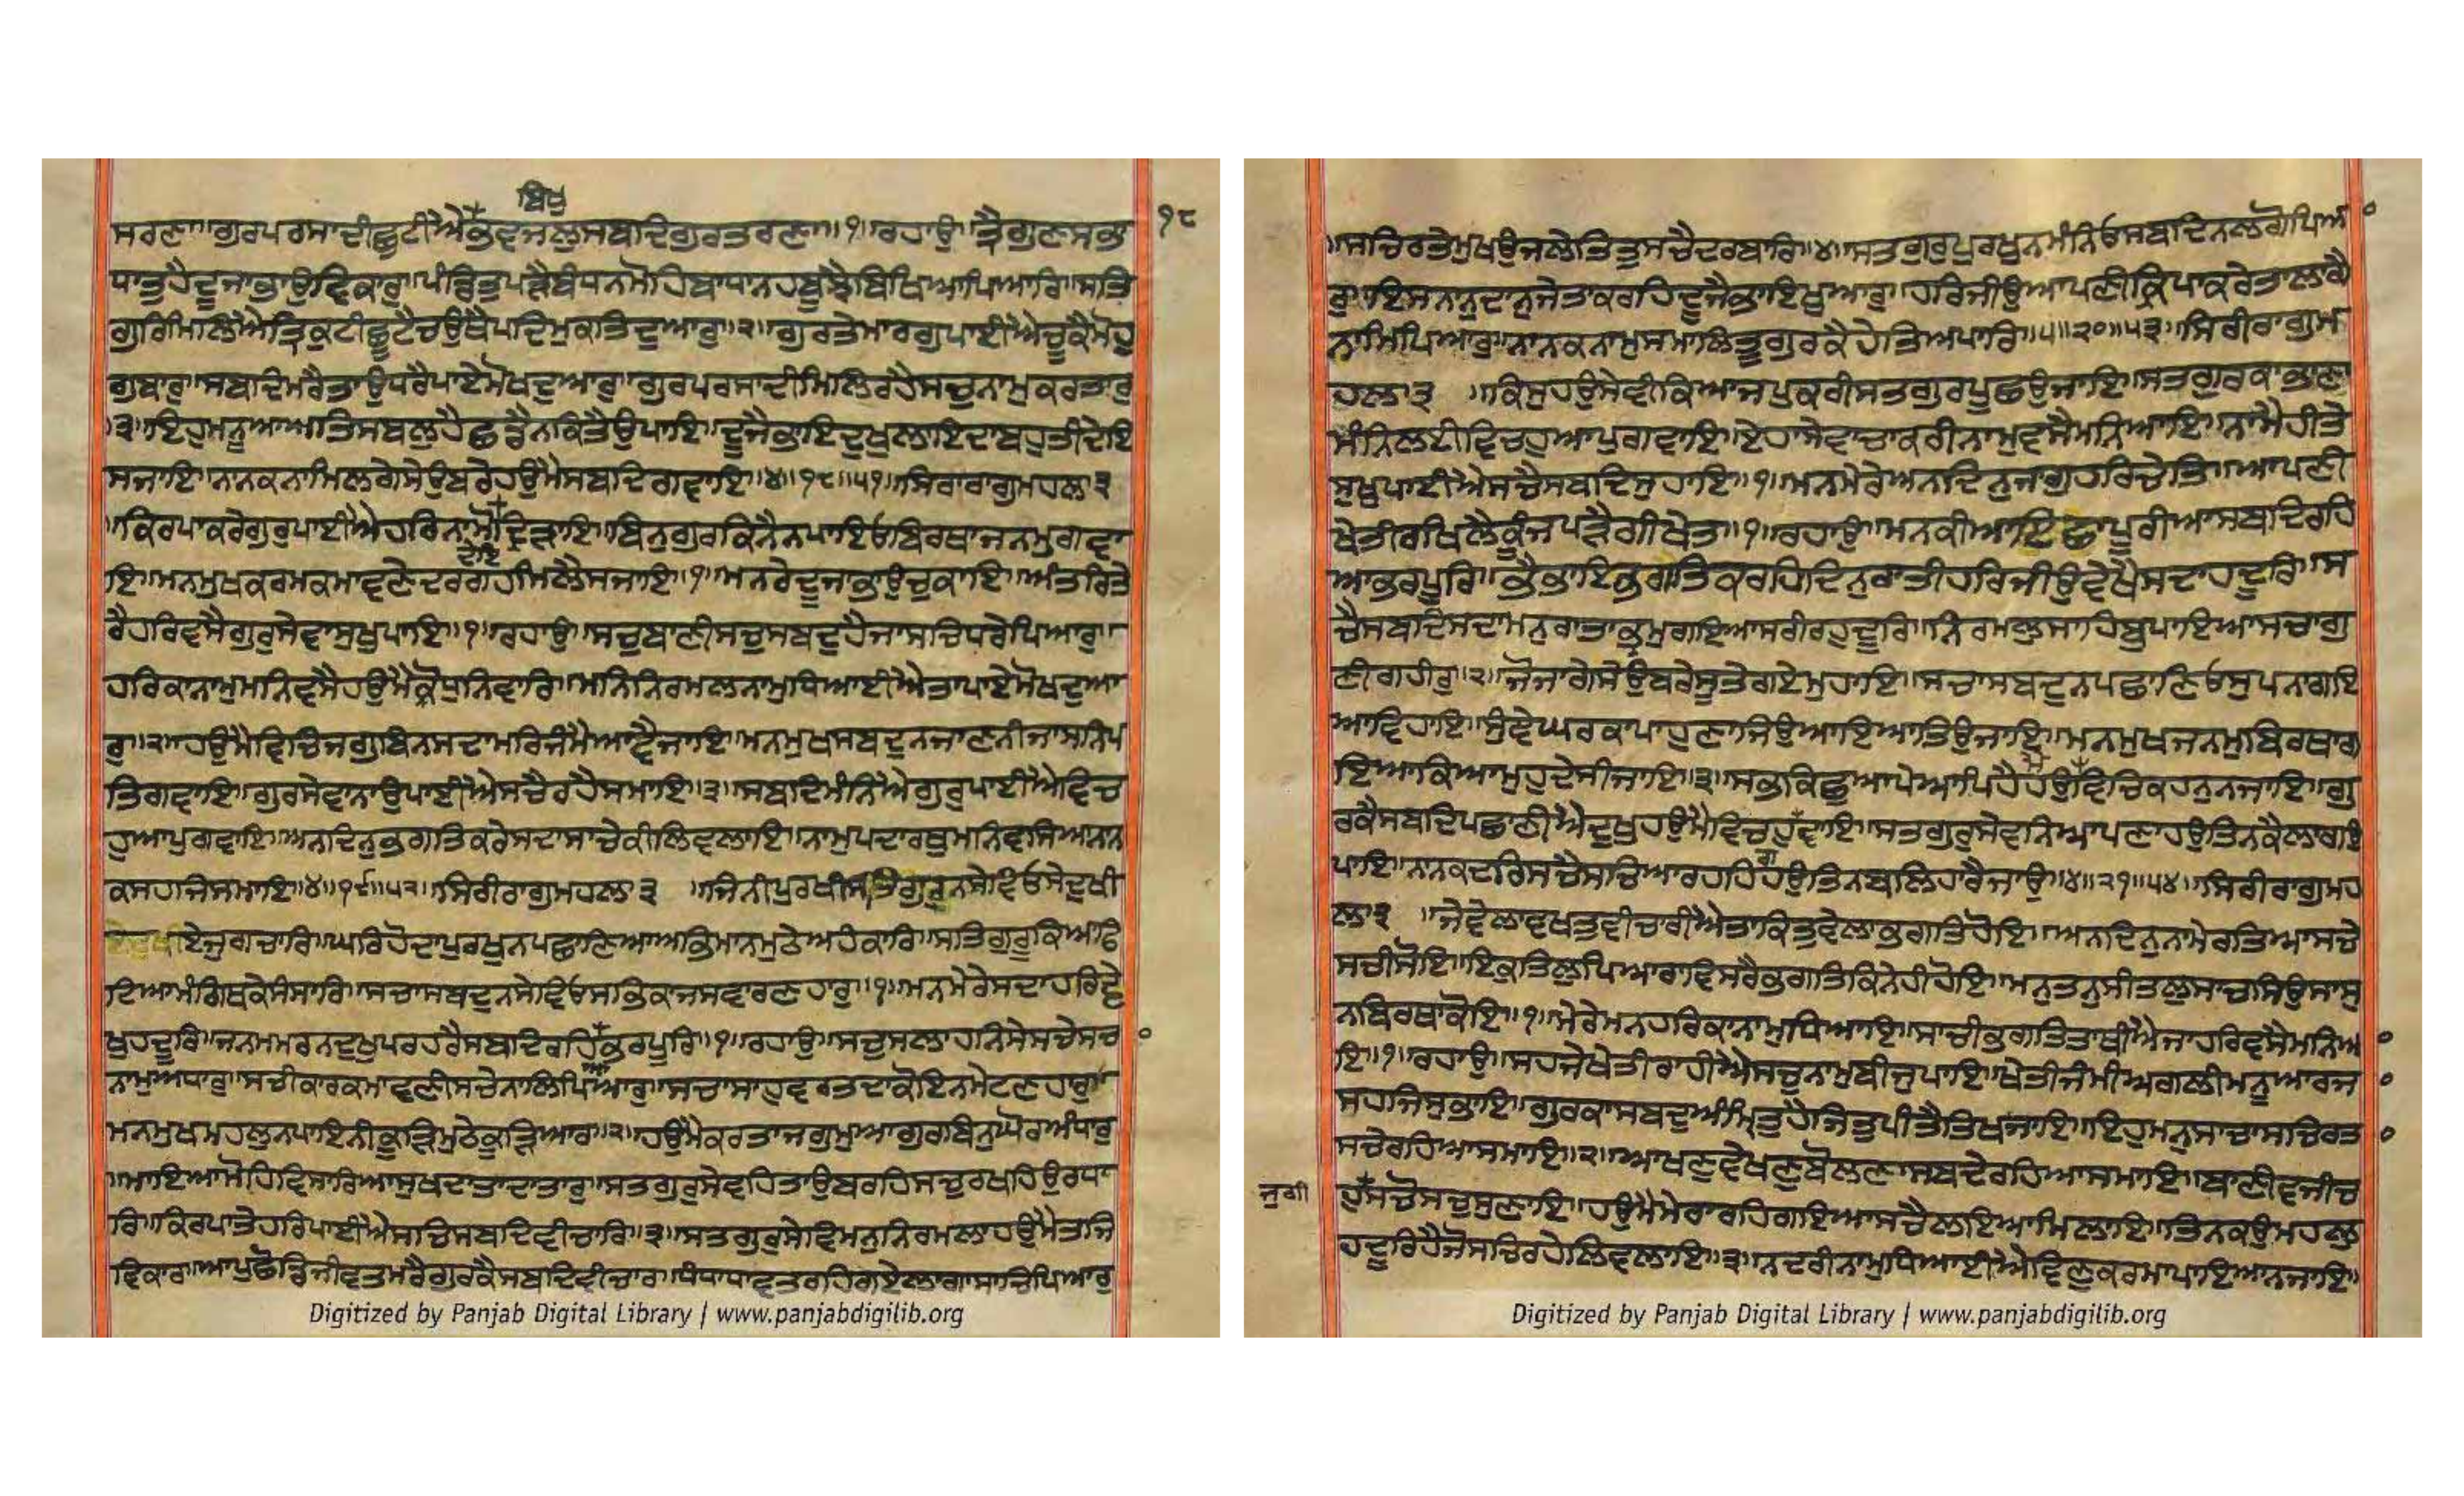 ਬਿਖੁ
ਸਰਣਾ॥ਗੁਰਪਰਸਾਦੀਛੁਟੀਐਭਵਜਲੁਸਬਦਿਗੁਰਤਰਣਾ॥੧॥ਰਹਾਉ॥ਤ੍ਰੈਗੁਣਸਭਾ
੧੮
ਧਾਤੁਹੈਦੂਜਾਭਾਉਵਿਕਾਰੁ॥ਪੰਡਿਤੁਪੜੈਬੰਧਨਮੋਹਬਾਧਾਨਹਬੂਝੈਬਿਖਿਆਪਿਆਰਿ॥ਸਤਿ
ਗੁਰਿਮਿਲਿਐਤ੍ਰਿਕੁਟੀਛੂਟੈਚਉਥੈਪਦਿਮੁਕਤਿਦੁਆਰੁ॥੨॥ਗੁਰਤੇਮਾਰਗੁਪਾਈਐਚੂਕੈਮੋਹੁ
ਗੁਬਾਰੁ॥ਸਬਦਿਮਰੈਤਾਉਧਰੈਪਾਏਮੋਖਦੁਆਰੁ॥ਗੁਰਪਰਸਾਦੀਮਿਲਿਰਹੈਸਚੁਨਾਮੁਕਰਤਾਰੁ
॥੩॥ਇਹੁਮਨੂਆਅਤਿਸਬਲੁਹੈਛਡੈਨਕਿਤੈਉਪਾਇ॥ਦੂਜੈਭਾਇਦੁਖੁਲਾਇਦਾਬਹੁਤੀਦੇਇ
ਸਜਾਇ॥ਨਾਨਕਨਾਮਿਲਗੇਸੇਉਬਰੇਹਉਮੈਸਬਦਿਗਵਾਇ॥੪॥੧੮॥੫੧॥ਸਿਰੀਰਾਗੁਮਹਲਾ੩
॥ਕਿਰਪਾਕਰੇਗੁਰੁਪਾਈਐਹਰਿਨਾਮੋਦ੍ਰਿੜਾਇ॥ਬਿਨੁਗੁਰਕਿਨੈਨਪਾਇਓਬਿਰਥਾਜਨਮੁਗਵਾ
ਦੇਇ
ਇ॥ਮਨਮੁਖਕਰਮਕਮਾਵਣੇਦਰਗਹਮਿਲੈਸਜਾਇ॥੧॥ਮਨਰੇਦੂਜਾਭਾਉਚੁਕਾਇ॥ਅੰਤਰਿਤੇ
ਰੈਹਰਿਵਸੈਗੁਰਸੇਵਾਸੁਖੁਪਾਇ॥੧॥ਰਹਾਉ॥ਸਚੁਬਾਣੀਸਚੁਸਬਦੁਹੈਜਾਸਚਿਧਰੇਪਿਆਰੁ॥
ਹਰਿਕਾਨਾਮੁਮਨਿਵਸੈਹਉਮੈਕ੍ਰੋਧੁਨਿਵਾਰਿ॥ਮਨਿਨਿਰਮਲਨਾਮੁਧਿਆਈਐਤਾਪਾਏਮੋਖਦੁਆ
ਰੁ॥੨॥ਹਉਮੈਵਿਚਿਜਗੁਬਿਨਸਦਾਮਰਿਜੰਮੈਆਵੈਜਾਇ॥ਮਨਮੁਖਸਬਦੁਨਜਾਣਨੀਜਾਸਨਿਪ
ਤਿਗਵਾਇ॥ਗੁਰਸੇਵਾਨਾਉਪਾਈਐਸਚੈਰਹੈਸਮਾਇ॥੩॥ਸਬਦਿਮੰਨਿਐਗੁਰੁਪਾਈਐਵਿਚ
ਹੁਆਪੁਗਵਾਇ॥ਅਨਦਿਨੁਭਗਤਿਕਰੇਸਦਾਸਾਚੇਕੀਲਿਵਲਾਇ॥ਨਾਮੁਪਦਾਰਥੁਮਨਿਵਸਿਆਨਾਨ
ਕਸਹਜਿਸਮਾਇ॥੪॥੧੯॥੫੨॥ਸਿਰੀਰਾਗੁਮਹਲਾ੩ ॥ਜਿਨੀਪੁਰਖੀਸਤਿਗੁਰੁਨਸੇਵਿਓਸੇਦੁਖੀ
ਏਜੁਗਚਾਰਿ॥ਘਰਿਹੋਦਾਪੁਰਖੁਨਪਛਾਣਿਆਅਭਿਮਾਨਮੁਠੇਅਹੰਕਾਰਿ॥ਸਤਿਗੁਰੁਕਿਆਫਿ
ਟਿਆਮੰਗਿਥਕੇਸੰਸਾਰਿ॥ਸਚਾਸਬਦੁਨਸੇਵਿਓਸਭਿਕਾਜਸਵਾਰਣਹਾਰੁ॥੧॥ਮਨਮੇਰੇਸਦਾਹਰਿਵੇ
ਖੁਹਦੂਰਿ॥ਜਨਮਮਰਨਦੁਖੁਪਰਹਰੈਸਬਦਿਰਹਿਆਭਰਪੂਰਿ॥੧॥ਰਹਾਉ॥ਸਚੁਸਲਾਹਨਿਸੇਸਚੇਸਚ
ਨਾਮੁਅਧਾਰੁ॥ਸਚੀਕਾਰਕਮਾਵਣੀਸਚੇਨਾਲਿਪਿਆਰੁ॥ਸਚਾਸਾਹੁਵਰਤਦਾਕੋਇਨਮੇਟਣਹਾਰੁ॥
ਮਨਮੁਖਮਹਲੁਨਪਾਇਨੀਕੂੜਿਮੁਠੇਕੂੜਿਆਰ॥੨॥ਹਉਮੈਕਰਤਾਜਗੁਮੁਆਗੁਰਬਿਨੁਘੋਰਅੰਧਾਰੁ
॥ਮਾਇਆਮੋਹਿਵਿਸਾਰਿਆਸੁਖਦਾਤਾਦਾਤਾਰੁ॥ਸਤਗੁਰੁਸੇਵਹਿਤਾਉਬਰਹਿਸਚੁਰਖਹਿਉਰਧਾ
ਰਿ॥ਕਿਰਪਾਤੇਹਰਿਪਾਈਐਸਚਿਸਬਦਿਵੀਚਾਰਿ॥੩॥ਸਤਗੁਰੁਸੇਵਿਮਨੁਨਿਰਮਲਾਹਉਮੈਤਜਿ
ਵਿਕਾਰ॥ਆਪੁਛੋਡਿਜੀਵਤਮਰੈਗੁਰਕੈਸਬਦਿਵੀਚਾਰ॥ਧੰਧਾਧਾਵਤਰਹਿਗਏਲਾਗਾਸਾਚਿਪਿਆਰੁ
Digitized by Panjab Digital Library | www.panjabdigilib.org
॥ਸਚਿਰਤੇਮੁਖਉਜਲੇਤਿਤੁਸਚੈਦਰਬਾਰਿ॥੪॥ਸਤਗੁਰੁਪੁਰਖੁਨਮੰਨਿਓਸਬਦਿਨਲਗੋਪਿਆ
ਰੁ॥ਇਸਨਾਨੁਦਾਨੁਜੇਤਾਕਰਹਿਦੂਜੈਭਾਇਖੁਆਰੁ॥ਹਰਿਜੀਉਆਪਣੀਕ੍ਰਿਪਾਕਰੇਤਾਲਾਗੈ
ਨਾਮਿਪਿਆਰੁ॥ਨਾਨਕਨਾਮੁਸਮਾਲਿਤੂਗੁਰਕੈਹੇਤਿਅਪਾਰਿ॥੫॥੨੦॥੫੩॥ਸਿਰੀਰਾਗੁਮ
ਹਲਾ੩ ॥ਕਿਸੁਹਉਸੇਵੀਕਿਆਜਪੁਕਰੀਸਤਗੁਰਪੂਛਉਜਾਇ॥ਸਤਗੁਰਕਾਭਾਣਾ
ਮੰਨਿਲਈਵਿਚਹੁਆਪੁਗਵਾਇ॥ਏਹਾਸੇਵਾਚਾਕਰੀਨਾਮੁਵਸੈਮਨਿਆਇ॥ਨਾਮੈਹੀਤੇ
ਸੁਖੁਪਾਈਐਸਚੈਸਬਦਿਸੁਹਾਇ॥੧॥ਮਨਮੇਰੇਅਨਦਿਨੁਜਾਗੁਹਰਿਚੇਤਿ॥ਆਪਣੀ
ਖੇਤੀਰਖਿਲੈਕੂੰਜਪੜੈਗੀਖੇਤ॥੧॥ਰਹਾਉ॥ਮਨਕੀਆਇਛਾਪੂਰੀਆਸਬਦਿਰਹਿ
ਆਭਰਪੂਰਿ॥ਭੈਭਾਇਭਗਤਿਕਰਹਿਦਿਨੁਰਾਤੀਹਰਿਜੀਉਵੇਖੈਸਦਾਹਦੂਰਿ॥ਸ
ਚੈਸਬਦਿਸਦਾਮਨੁਰਾਤਾਭ੍ਰਮੁਗਇਆਸਰੀਰਹੁਦੂਰਿ॥ਨਿਰਮਲੁਸਾਹਿਬੁਪਾਇਆਸਾਚਾਗੁ
ਣੀਗਹੀਰੁ॥੨॥ਜੋਜਾਗੇਸੇਉਬਰੇਸੂਤੇਗਏਮੁਹਾਇ॥ਸਚਾਸਬਦੁਨਪਛਾਣਿਓਸੁਪਨਾਗਇ
ਆਵਿਹਾਇ॥ਸੁੰਞੇਘਰਕਾਪਾਹੁਣਾਜਿਉਆਇਆਤਿਉਜਾਇ॥ਮਨਮੁਖਜਨਮੁਬਿਰਥਾਗ
ਇਆਕਿਆਮੁਹੁਦੇਸੀਜਾਇ॥੩॥ਸਭਕਿਛੁਆਪੇਆਪਿਹੈਹਉਵਿਚਿਕਹਨੁਨਜਾਇ॥ਗੁ
ਰਕੈਸਬਦਿਪਛਾਣੀਐਦੁਖੁਹਉਮੈਵਿਚਹੁਗਵਾਇ॥ਸਤਗੁਰੁਸੇਵਨਿਆਪਣਾਹਉਤਿਨਕੈਲਾਗਉ
ਪਾਇ॥ਨਾਨਕਦਰਿਸਚੈਸਚਿਆਰਹਹਿਹਉਤਿਨਬਲਿਹਾਰੈਜਾਉ॥੪॥੨੧॥੫੪॥ਸਿਰੀਰਾਗੁਮਹ
ਲਾ੩ ॥ਜੇਵੇਲਾਵਖਤੁਵੀਚਾਰੀਐਤਾਕਿਤੁਵੇਲਾਭਗਤਿਹੋਇ॥ਅਨਦਿਨੁਨਾਮੇਰਤਿਆਸਚੇ
ਸਚੀਸੋਇ॥ਇਕੁਤਿਲੁਪਿਆਰਾਵਿਸਰੈਭਗਤਿਕਿਨੇਹੀਹੋਇ॥ਮਨੁਤਨੁਸੀਤਲੁਸਾਚਸਿਉਸਾਸੁ
ਨਬਿਰਥਾਕੋਇ॥੧॥ਮੇਰੇਮਨਹਰਿਕਾਨਾਮੁਧਿਆਇ॥ਸਾਚੀਭਗਤਿਤਾਥੀਐਜਾਹਰਿਵਸੈਮਨਿਆ
ਇ॥੧॥ਰਹਾਉ॥ਸਹਜੇਖੇਤੀਰਾਹੀਐਸਚੁਨਾਮੁਬੀਜੁਪਾਇ॥ਖੇਤੀਜੰਮੀਅਗਲੀਮਨੂਆਰਜਾ
ਸਹਜਿਸੁਭਾਇ॥ਗੁਰਕਾਸਬਦੁਅੰਮ੍ਰਿਤੁਹੈਜਿਤੁਪੀਤੈਤਿਖਜਾਇ॥ਇਹੁਮਨੁਸਾਚਾਸਚਿਰਤਾ
ਸਚੇਰਹਿਆਸਮਾਇ॥੨॥ਆਖਣੁਵੇਖਣੁਬੋਲਣਾਸਬਦੇਰਹਿਆਸਮਾਇ॥ਬਾਣੀਵਜੀਚ
ਜੁਗੀ
ਹੁਸਚੋਸਚੁਸੁਣਾਇ॥ਹਉਮੈਮੇਰਾਰਹਿਗਇਆਸਚੈਲਇਆਮਿਲਾਇ॥ਤਿਨਕਉਮਹਲੁ
ਹਦੂਰਿਹੈਜੋਸਚਿਰਹੇਲਿਵਲਾਇ॥੩॥ਨਦਰੀਨਾਮੁਧਿਆਈਐਵਿਣੁਕਰਮਾਪਾਇਆਨਜਾਇ॥
Digitized by Panjab Digital Library | www.panjabdigilib.org